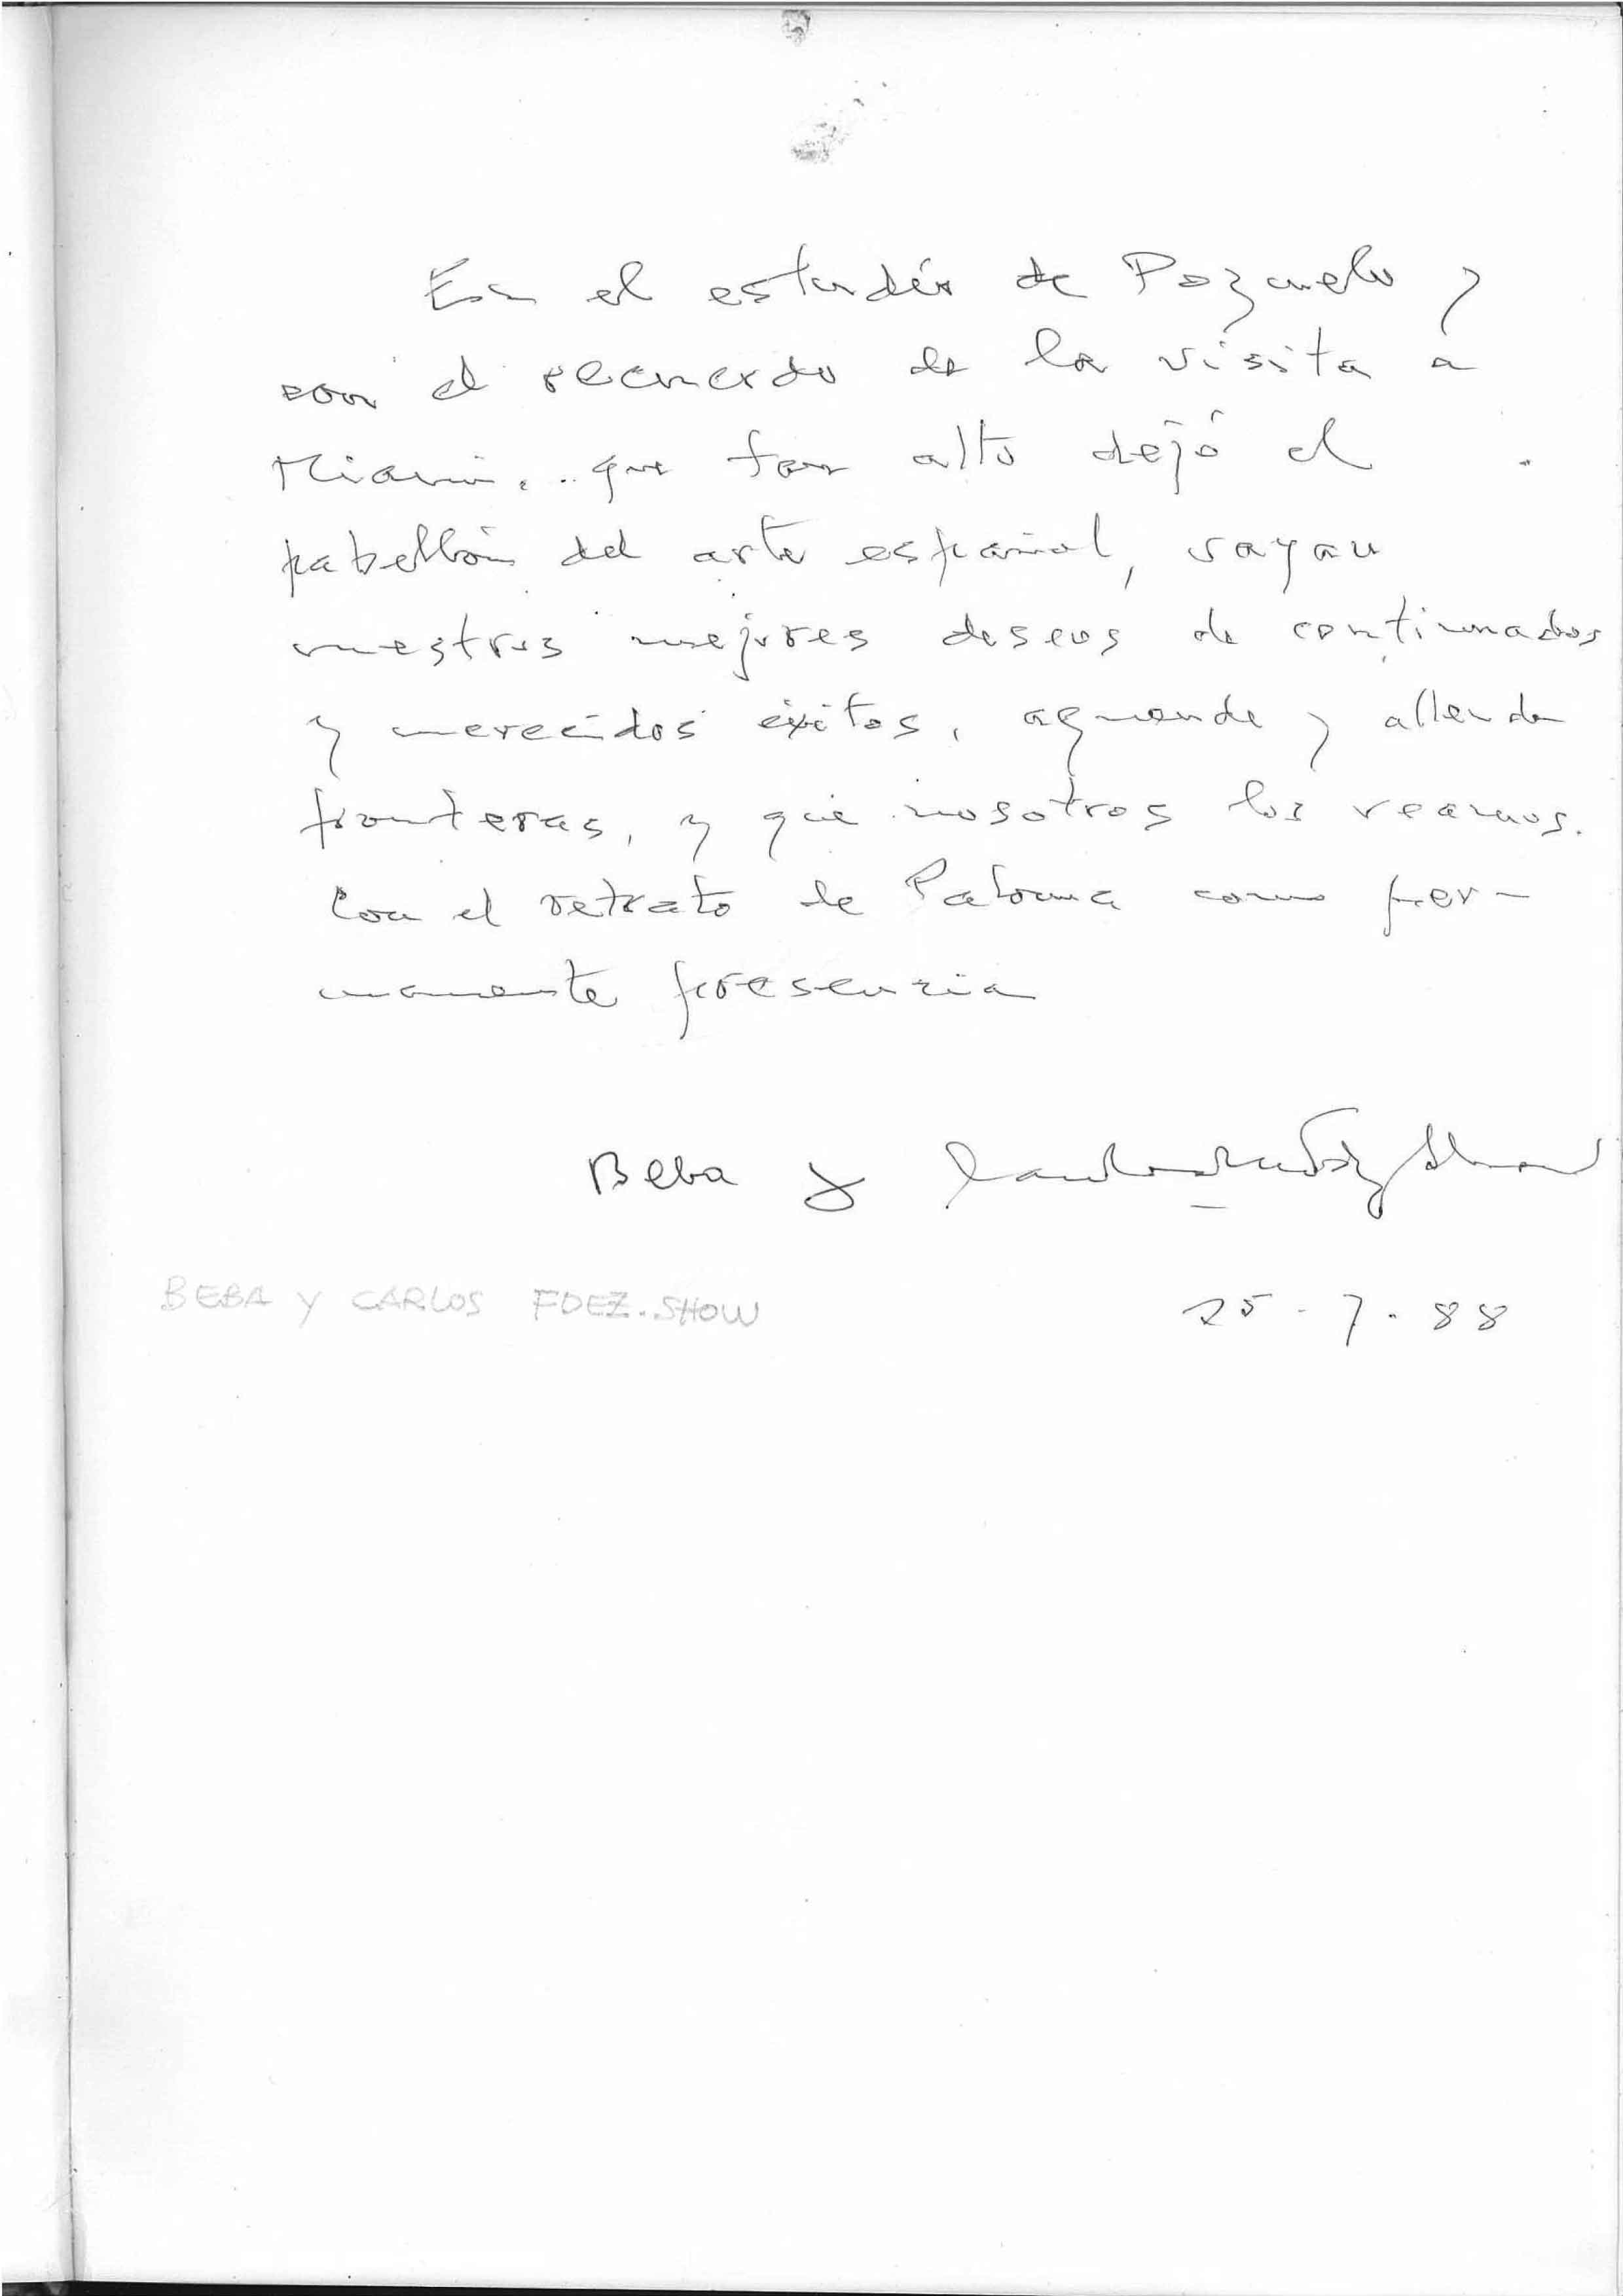 En el estudio de Pozuelo y
con el recuerdo de la visita a
Miami, que tan alto dejó el
pabellón del arte español, vayan
nuestros mejores deseos de continuados
y merecidos éxitos, aquende y allende
fronteras, y que nosotros los veamos.
Con el retrato de Paloma como per-
manente presencia
Beba y
BEBA Y CARLOS FDEZ. SHOW
25 - 7 - 88